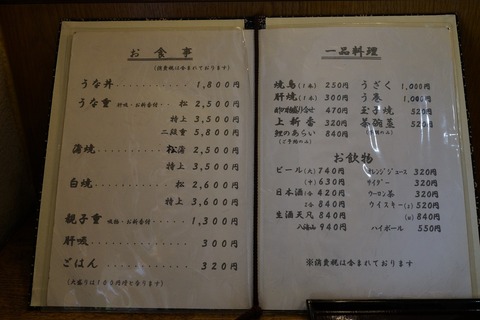 お食事
(消費税は含まれております)
うな丼 1,800円
うな重 肝吸・お新香付 松 2,500円
特上 3,500円
二段重 5,800円
蒲焼 松 2,500円
特上 3,500円
白焼 松 2,600円
特上 3,600円
親子重 吸物・お新香付 1,300円
肝吸 300円
ごはん 320円
(大盛りは100円増と なります)
一品料理
焼鳥(1本) 250円
肝焼(1本) 300円
470円
上新香 320円
鯉のあらい 840円
(ご予約のみ)
うざく 1,000円
う巻 1,000円
玉子焼 520円
茶碗蒸 520円
お飲物
ビール(大) 740円
(中) 630円
日本酒 420円
840円
生酒天凡 840円
八海山 940円
オレンジジュース 320円
サイダー 320円
ウーロン茶 320円
ウイスキー(s) 520円
(W) 840円
ハイボール 550円
※消費税は含まれております